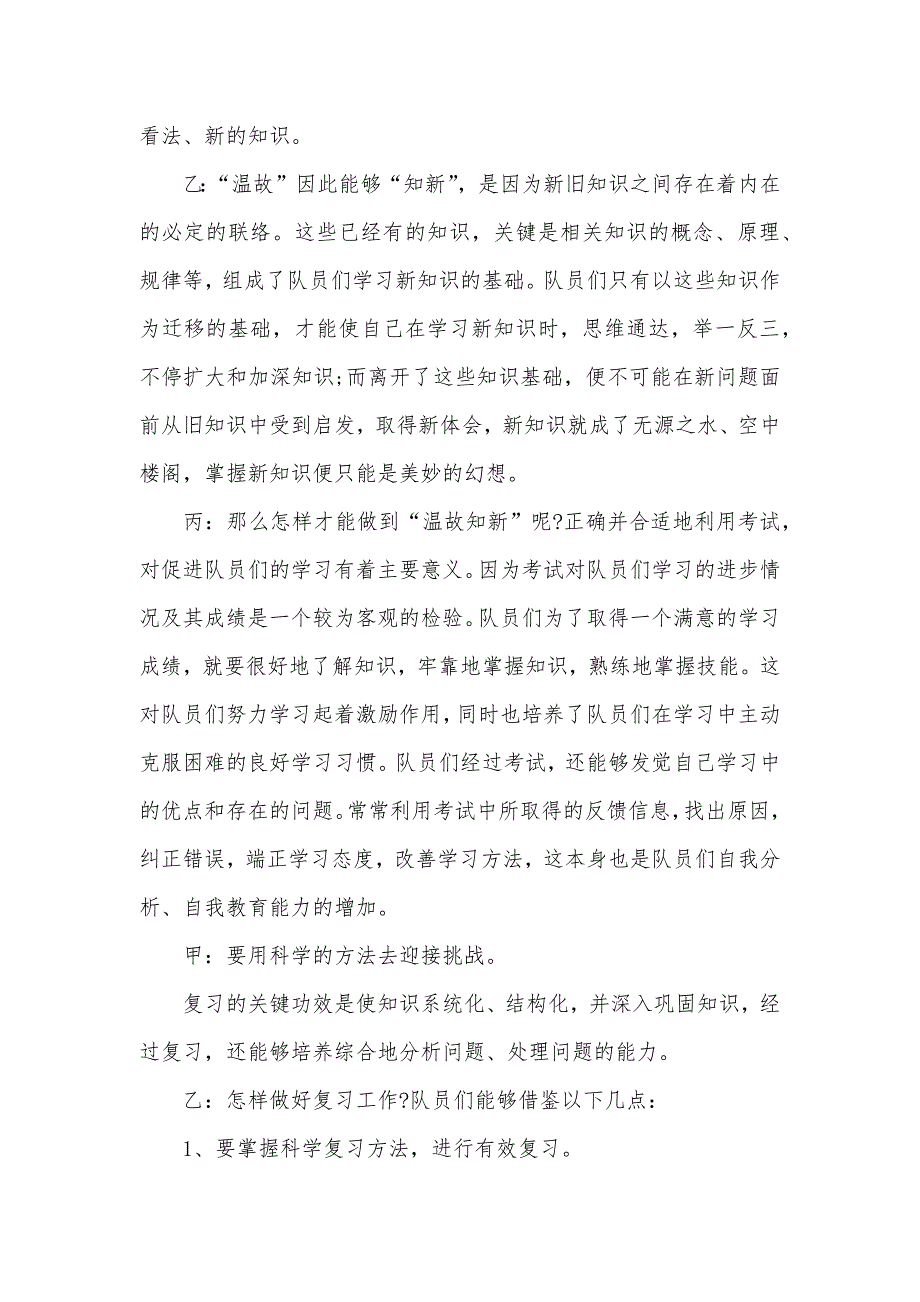 看法、新的知识。
乙：“温故”因此能够“知新”，是因为新旧知识之间存在着内在
的必定的联络。这些已经有的知识，关键是相关知识的概念、原理、
规律等，组成了队员们学习新知识的基础。队员们只有以这些知识作
为迁移的基础，才能使自己在学习新知识时，思维通达，举一反三，
不停扩大和加深知识;而离开了这些知识基础，便不可能在新问题面
前从旧知识中受到启发，取得新体会，新知识就成了无源之水、空中
楼阁，掌握新知识便只能是美妙的幻想。
丙：那么怎样才能做到“温故知新”呢?正确并合适地利用考试，
对促进队员们的学习有着主要意义。因为考试对队员们学习的进步情
况及其成绩是一个较为客观的检验。队员们为了取得一个满意的学习
成绩，就要很好地了解知识，牢靠地掌握知识，熟练地掌握技能。这
对队员们努力学习起着激励作用，同时也培养了队员们在学习中主动
克服困难的良好学习习惯。队员们经过考试，还能够发觉自己学习中
的优点和存在的问题。常常利用考试中所取得的反馈信息，找出原因，
纠正错误，端正学习态度，改善学习方法，这本身也是队员们自我分
析、自我教育能力的增加。
甲：要用科学的方法去迎接挑战。
复习的关键功效是使知识系统化、结构化，并深入巩固知识，经
过复习，还能够培养综合地分析问题、处理问题的能力。
乙：怎样做好复习工作?队员们能够借鉴以下几点：
1、要掌握科学复习方法，进行有效复习。